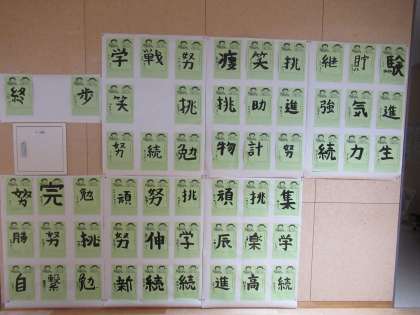 学 戦 努
笑 挑
努 続 勉
痩 笑 挑
挑 助 進
物 計 努
継 貯 験
強 気 進
続 力 生
終 歩
努 完 勉
勝 努 挑
自 繋 勉
頑 努 挑
努 伸 学
新 続 続
頑 挑 集
辰 楽 学
進 高 続